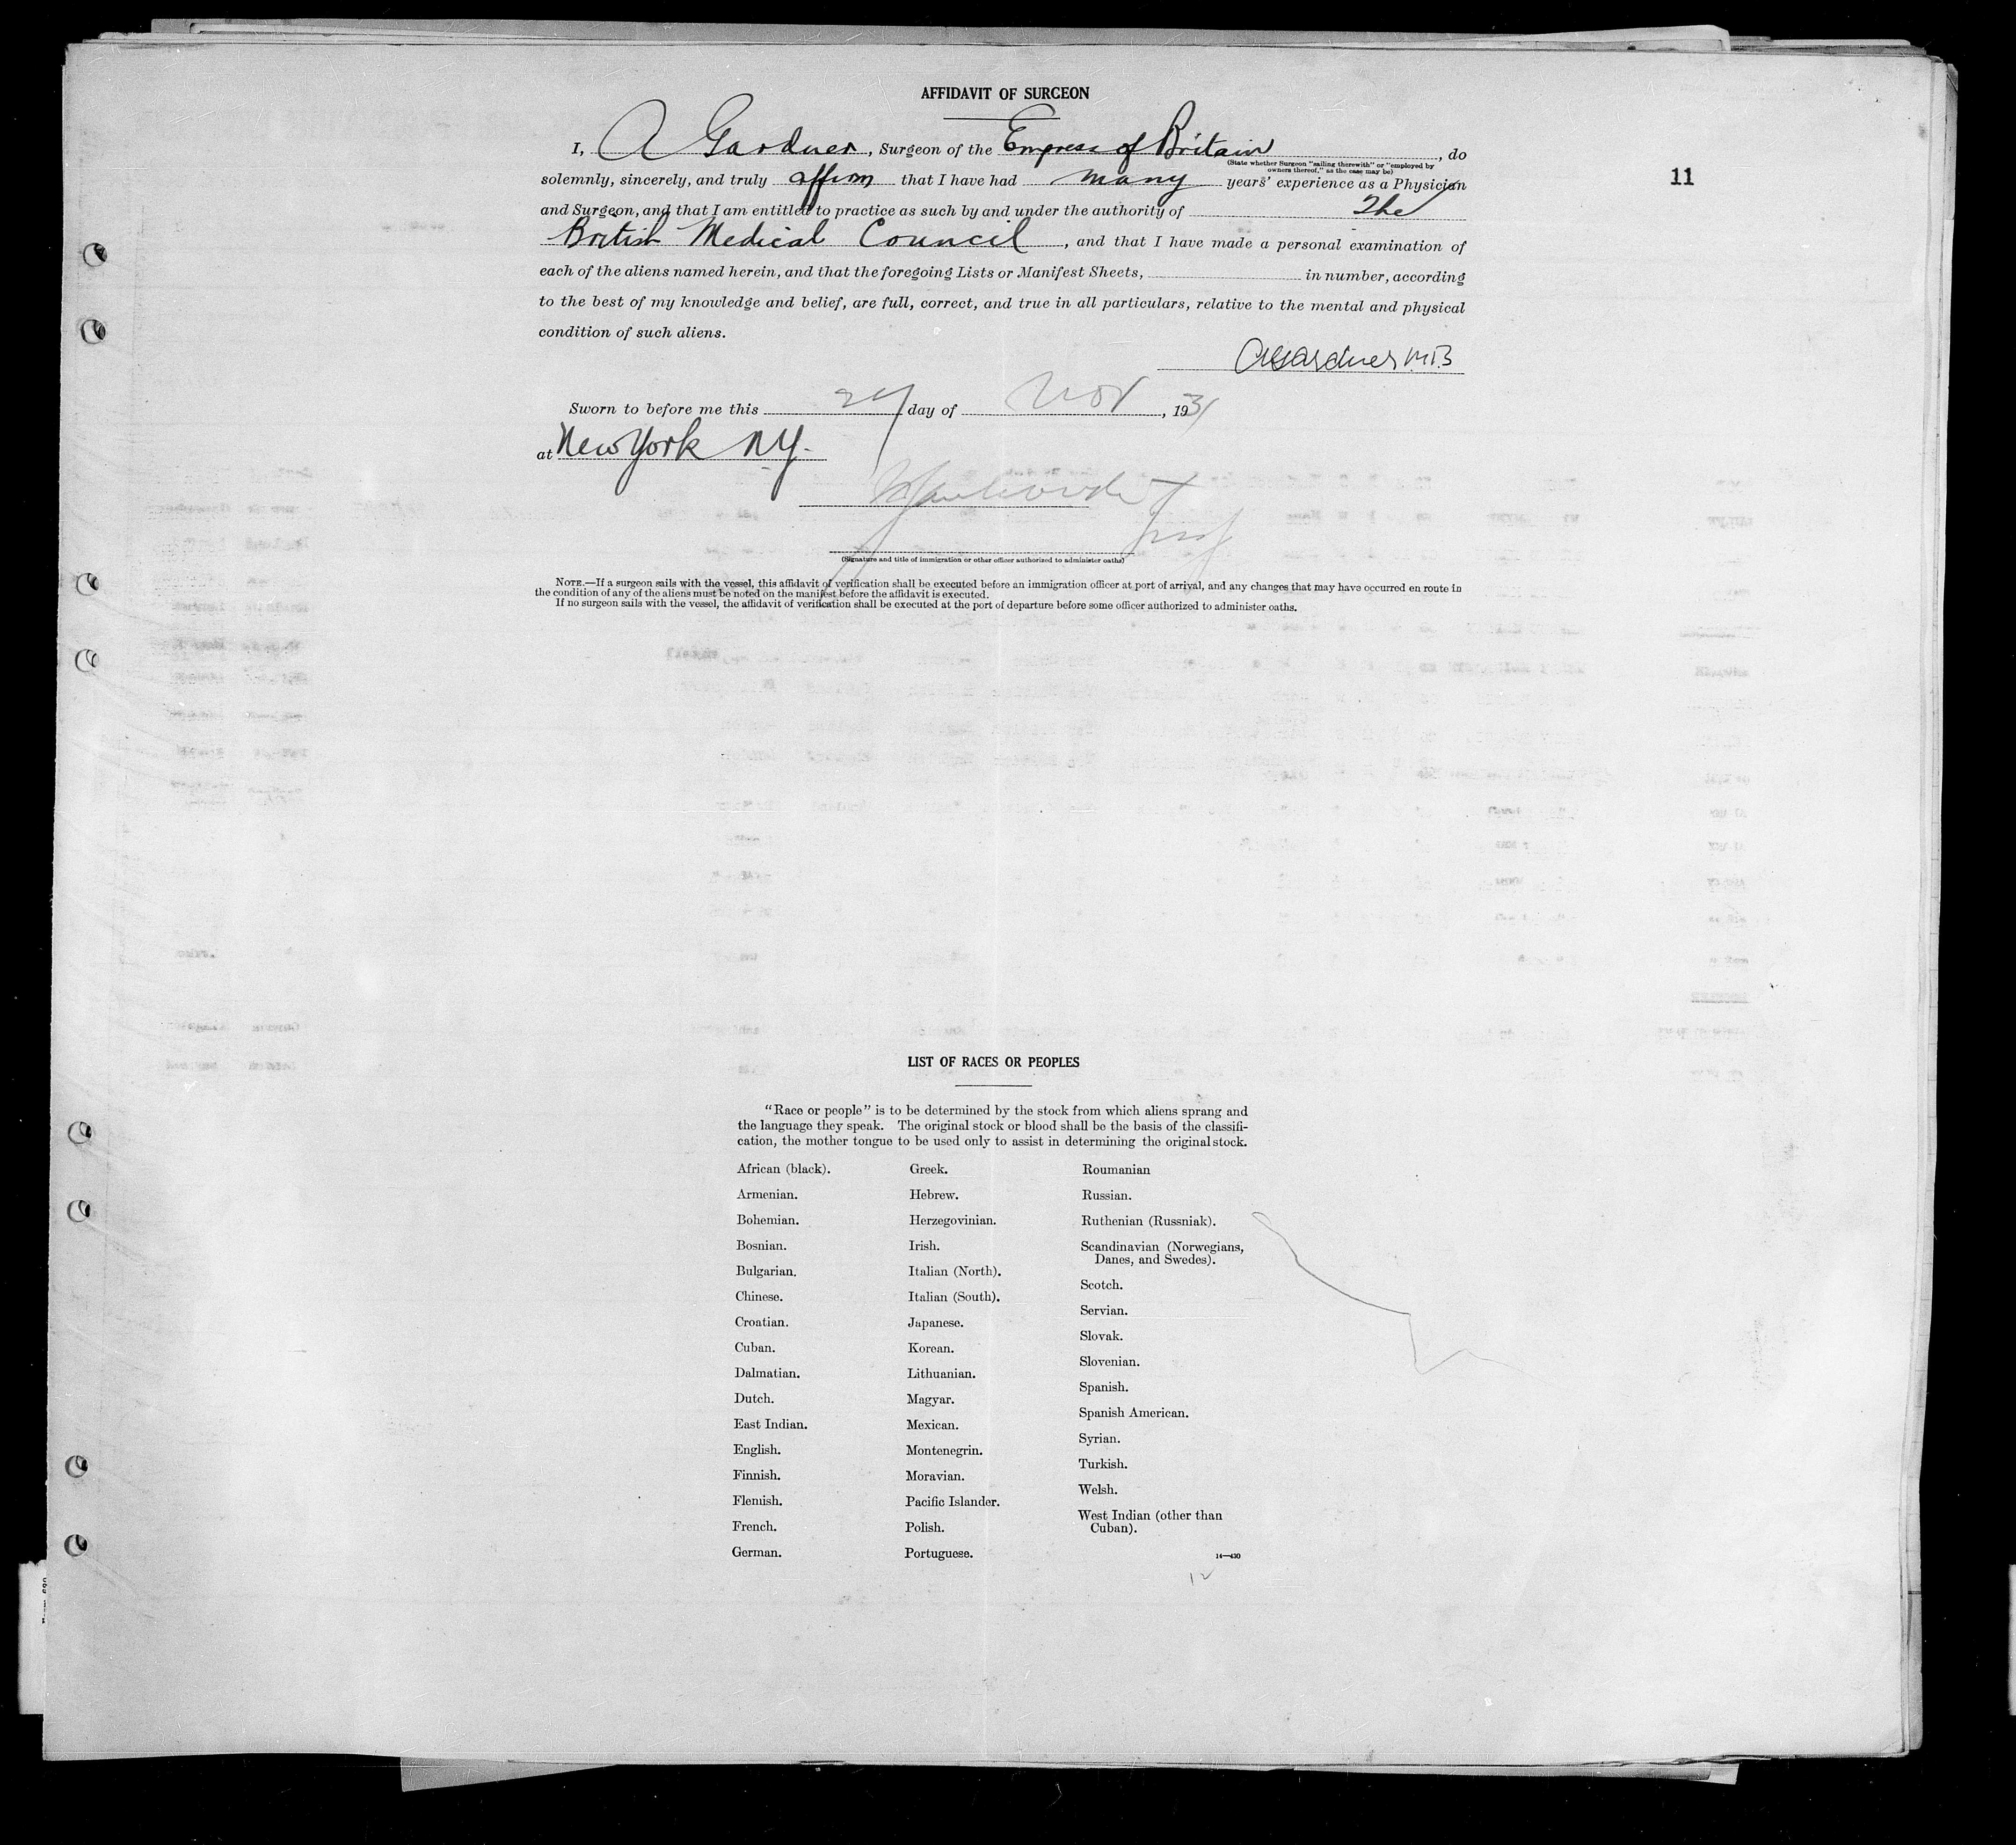 AFFIDAVIT OF SURGEON
I, A Gardner, Surgeon of the Empress of Britain, do
(State whether Surgeon "sailing therewith" or "employed by
owners thereof," as the case may be)
solemnly, sincerely, and truly affirm that I have had many years' experience as a Physician
11
and Surgeon, and that I am entitled to practice as such by and under the authority of The
British Medical Council, and that I have made a personal examination of
each of the aliens named herein, and that the foregoing Lists or Manifest Sheets, in number, according
to the best of my knowledge and belief, are full, correct, and true in all particulars, relative to the mental and physical
condition of such aliens.
A Gardner M.B
Sworn to before me this day of Nov, 1931
at New York N.Y.
(Signature and title of immigration or other officer authorized to administer oaths)
NOTE.—If a surgeon sails with the vessel, this affidavit of verification shall be executed before an immigration officer at port of arrival, and any changes that may have occurred en route in
the condition of any of the aliens must be noted on the manifest before the affidavit is executed.
If no surgeon sails with the vessel, the affidavit of verification shall be executed at the port of departure before some officer authorized to administer oaths.
LIST OF RACES OR PEOPLES
"Race or people" is to be determined by the stock from which aliens sprang and
the language they speak. The original stock or blood shall be the basis of the classifi-
cation, the mother tongue to be used only to assist in determining the original stock.
African (black).
Armenian.
Bohemian.
Bosnian.
Bulgarian.
Chinese.
Croatian.
Cuban.
Dalmatian.
Dutch.
East Indian.
English.
Finnish.
Flemish.
French.
German.
Greek.
Hebrew.
Herzegovinian.
Irish.
Italian (North).
Italian (South).
Japanese.
Korean.
Lithuanian.
Magyar.
Mexican.
Montenegrin.
Moravian.
Pacific Islander.
Polish.
Portuguese.
Roumanian
Russian.
Ruthenian (Russniak).
Scandinavian (Norwegians,
Danes, and Swedes).
Scotch.
Servian.
Slovak.
Slovenian.
Spanish.
Spanish American.
Syrian.
Turkish.
Welsh.
West Indian (other than
Cuban).
14—430
12